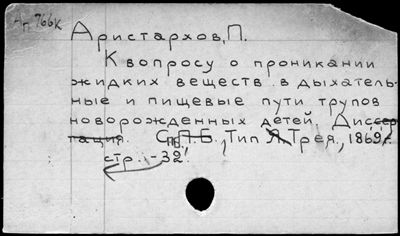 г 766к
Аристархов, П.
К вопросу о проникании
жидких веществ в дыхатель-
ные и пищевые пути трупов
новорожденных детей. Диссер-
тация. СПБ, Тип Я. Трея, 1869.
стр. - 32.